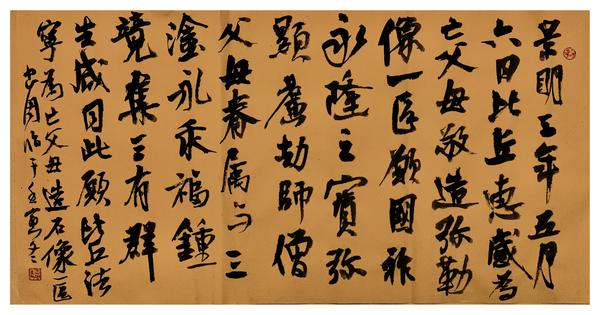 景明三年五月
六日比丘惠感為
亡父母敬造弥勒
像一區願國祚
永隆三寶弥
顯廣劫師僧
父母眷属与三
塗永乖福鍾
競集三有群
生咸同此願比丘法
寧為亡父母造石像區
國臨于壬寅冬